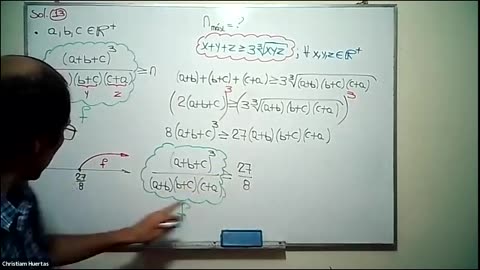 Sol: 13
• a, b, c ∈ ℝ⁺
(a+b+c)³
(b+c)(c+a)
≥ n
y z
f
n máx = ?
x+y+z ≥ 3∛xyz ; ∀ x,y,z ∈ ℝ⁺
(a+b)+(b+c)+(c+a) ≥ 3∛(a+b)(b+c)(c+a)
(2(a+b+c))³ ≥ (3∛(a+b)(b+c)(c+a))³
8(a+b+c)³ ≥ 27(a+b)(b+c)(c+a)
f
27
8
(a+b+c)³
(a+b)(b+c)(c+a)
≥ 27
8
Christiam Huertas